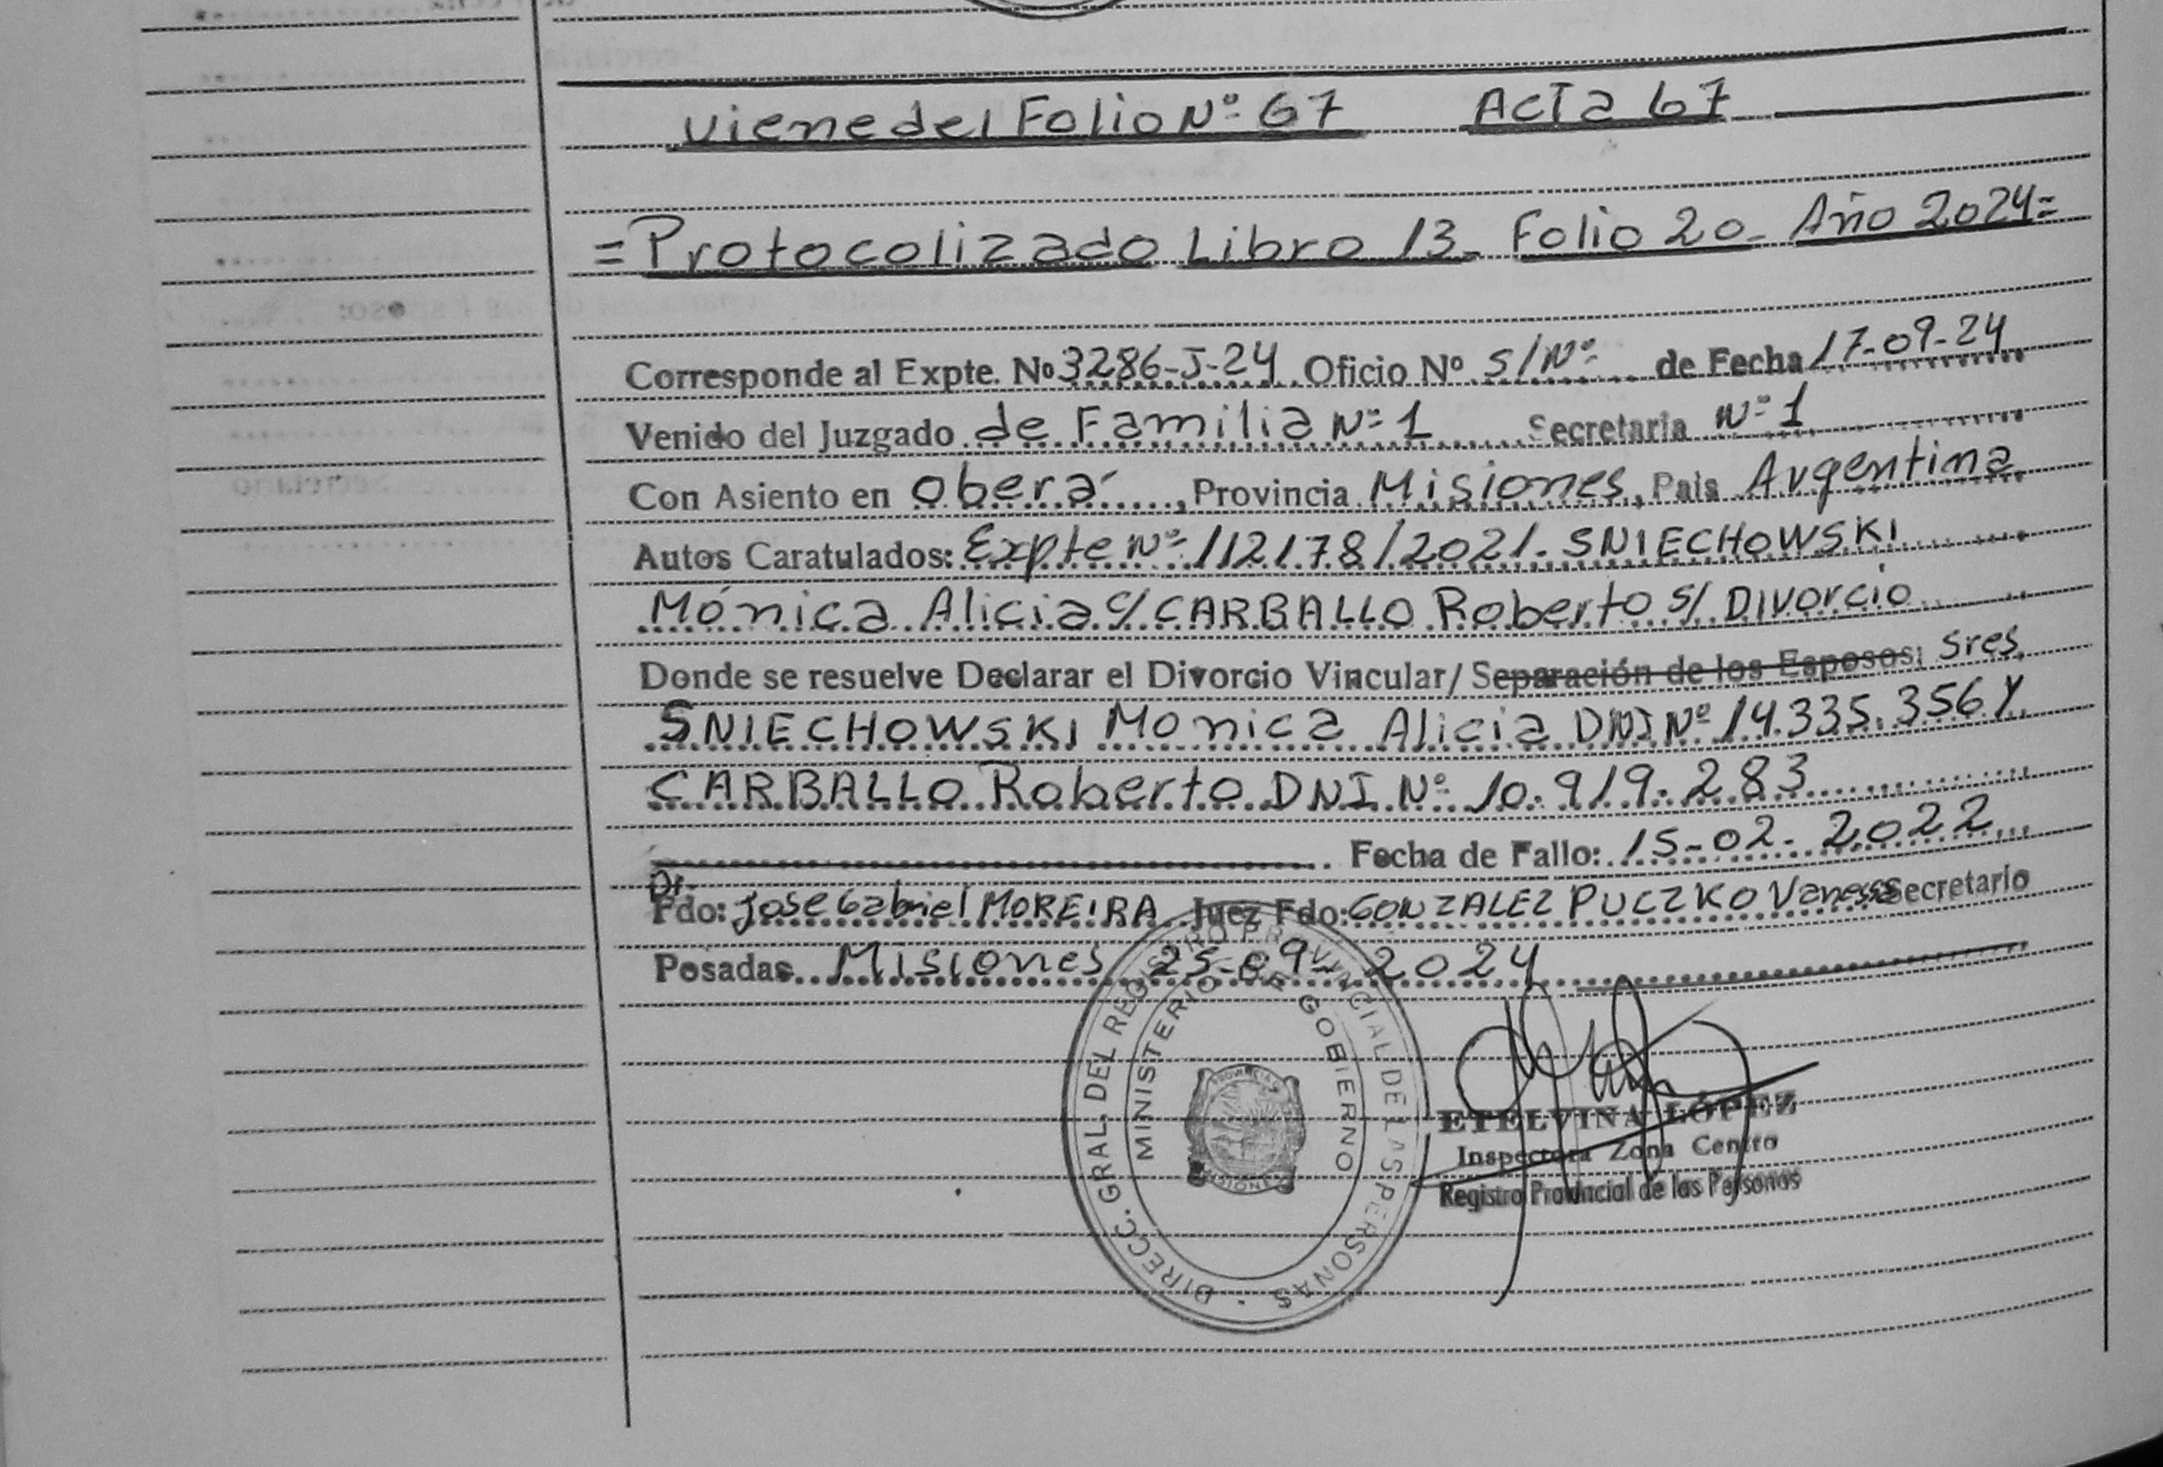 viene del Folio Nº 67 Acta 67
= Protocolizado Libro 13- Folio 20- Año 2024=
Corresponde al Expte. Nº 3286-J-24 Oficio Nº s/Nº de Fecha 17-09-24
Venido del Juzgado de Familia Nº 1 Secretaria Nº 1
Con Asiento en oberá, Provincia Misiones, País Argentina
Autos Caratulados: Expte Nº 112178/2021. SNIECHOWSKI
Mónica Alicia c/ CARBALLO Roberto s/ Divorcio
Donde se resuelve Declarar el Divorcio Vincular/ Separación de los Esposos: Sres.
SNIECHOWSKI Monica Alicia DNI Nº 14.335.356 Y
CARBALLO Roberto DNI. Nº 10.919.283
Fecha de Fallo: 15-02-2022
Dr.
Fdo: José Gabriel MOREIRA Juez Fdo: GONZALEZ PUCZKO Vanessa Secretario
Posadas Misiones 25-09-2024
DIRECC. GRAL. DEL REGISTRO PROVINCIAL DE LAS PERSONAS
MINISTERIO DE GOBIERNO
PROVINCIA
MISIONES
ETELVINA LÓPEZ
Inspectora Zona Centro
Registro Provincial de las Personas